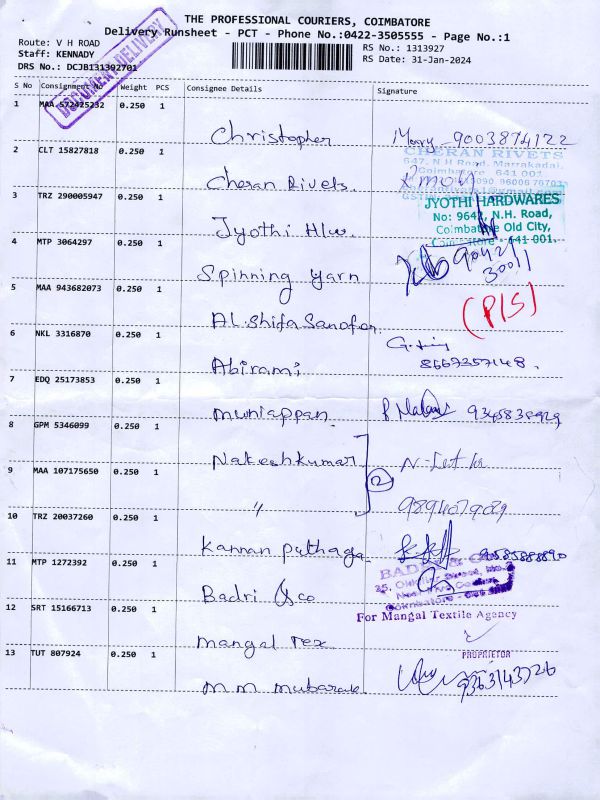 THE PROFESSIONAL COURIERS, COIMBATORE
Delivery Runsheet - PCT - Phone No.:0422-3505555 - Page No.:1
Route: V H ROAD
Staff: KENNADY
DRS No.: DCJB131392701
RS No.: 1313927
RS Date: 31-Jan-2024
DOCUMENT DELIVERY
S No Consignment No Weight PCS Consignee Details Signature
1 MAA 572425232 0.250 1
Christopher 9003874122
2 CLT 15827818 0.250 1
CHERAN RIVETS
647, N H Road, Marrakadai,
Coimbatore 641 001
Cheran Rivets.
3 TRZ 290005947 0.250 1
JYOTHI HARDWARES
No: 964, N.H. Road,
Coimbatore Old City,
Coimbatore - 641 001.
Jyothi H/w.
4 MTP 3064297 0.250 1
Spinning yarn
5 MAA 943682073 0.250 1
(P/S)
AL Shifa Sanofer.
6 NKL 3316870 0.250 1
Abirami 8667357148.
7 EDQ 25173853 0.250 1
Muniappan. 9345838929
8 GPM 5346099 0.250 1
Nakeshkumar
9 MAA 107175650 0.250 1
2
"
10 TRZ 20037260 0.250 1
Kannan Puthaga.
11 MTP 1272392 0.250 1
Badri & co
12 SRT 15166713 0.250 1
For Mangal Textile Agency
Mangal Tex
PROPRIETOR
13 TUT 807924 0.250 1
M.M. Mubarak. 9363143726